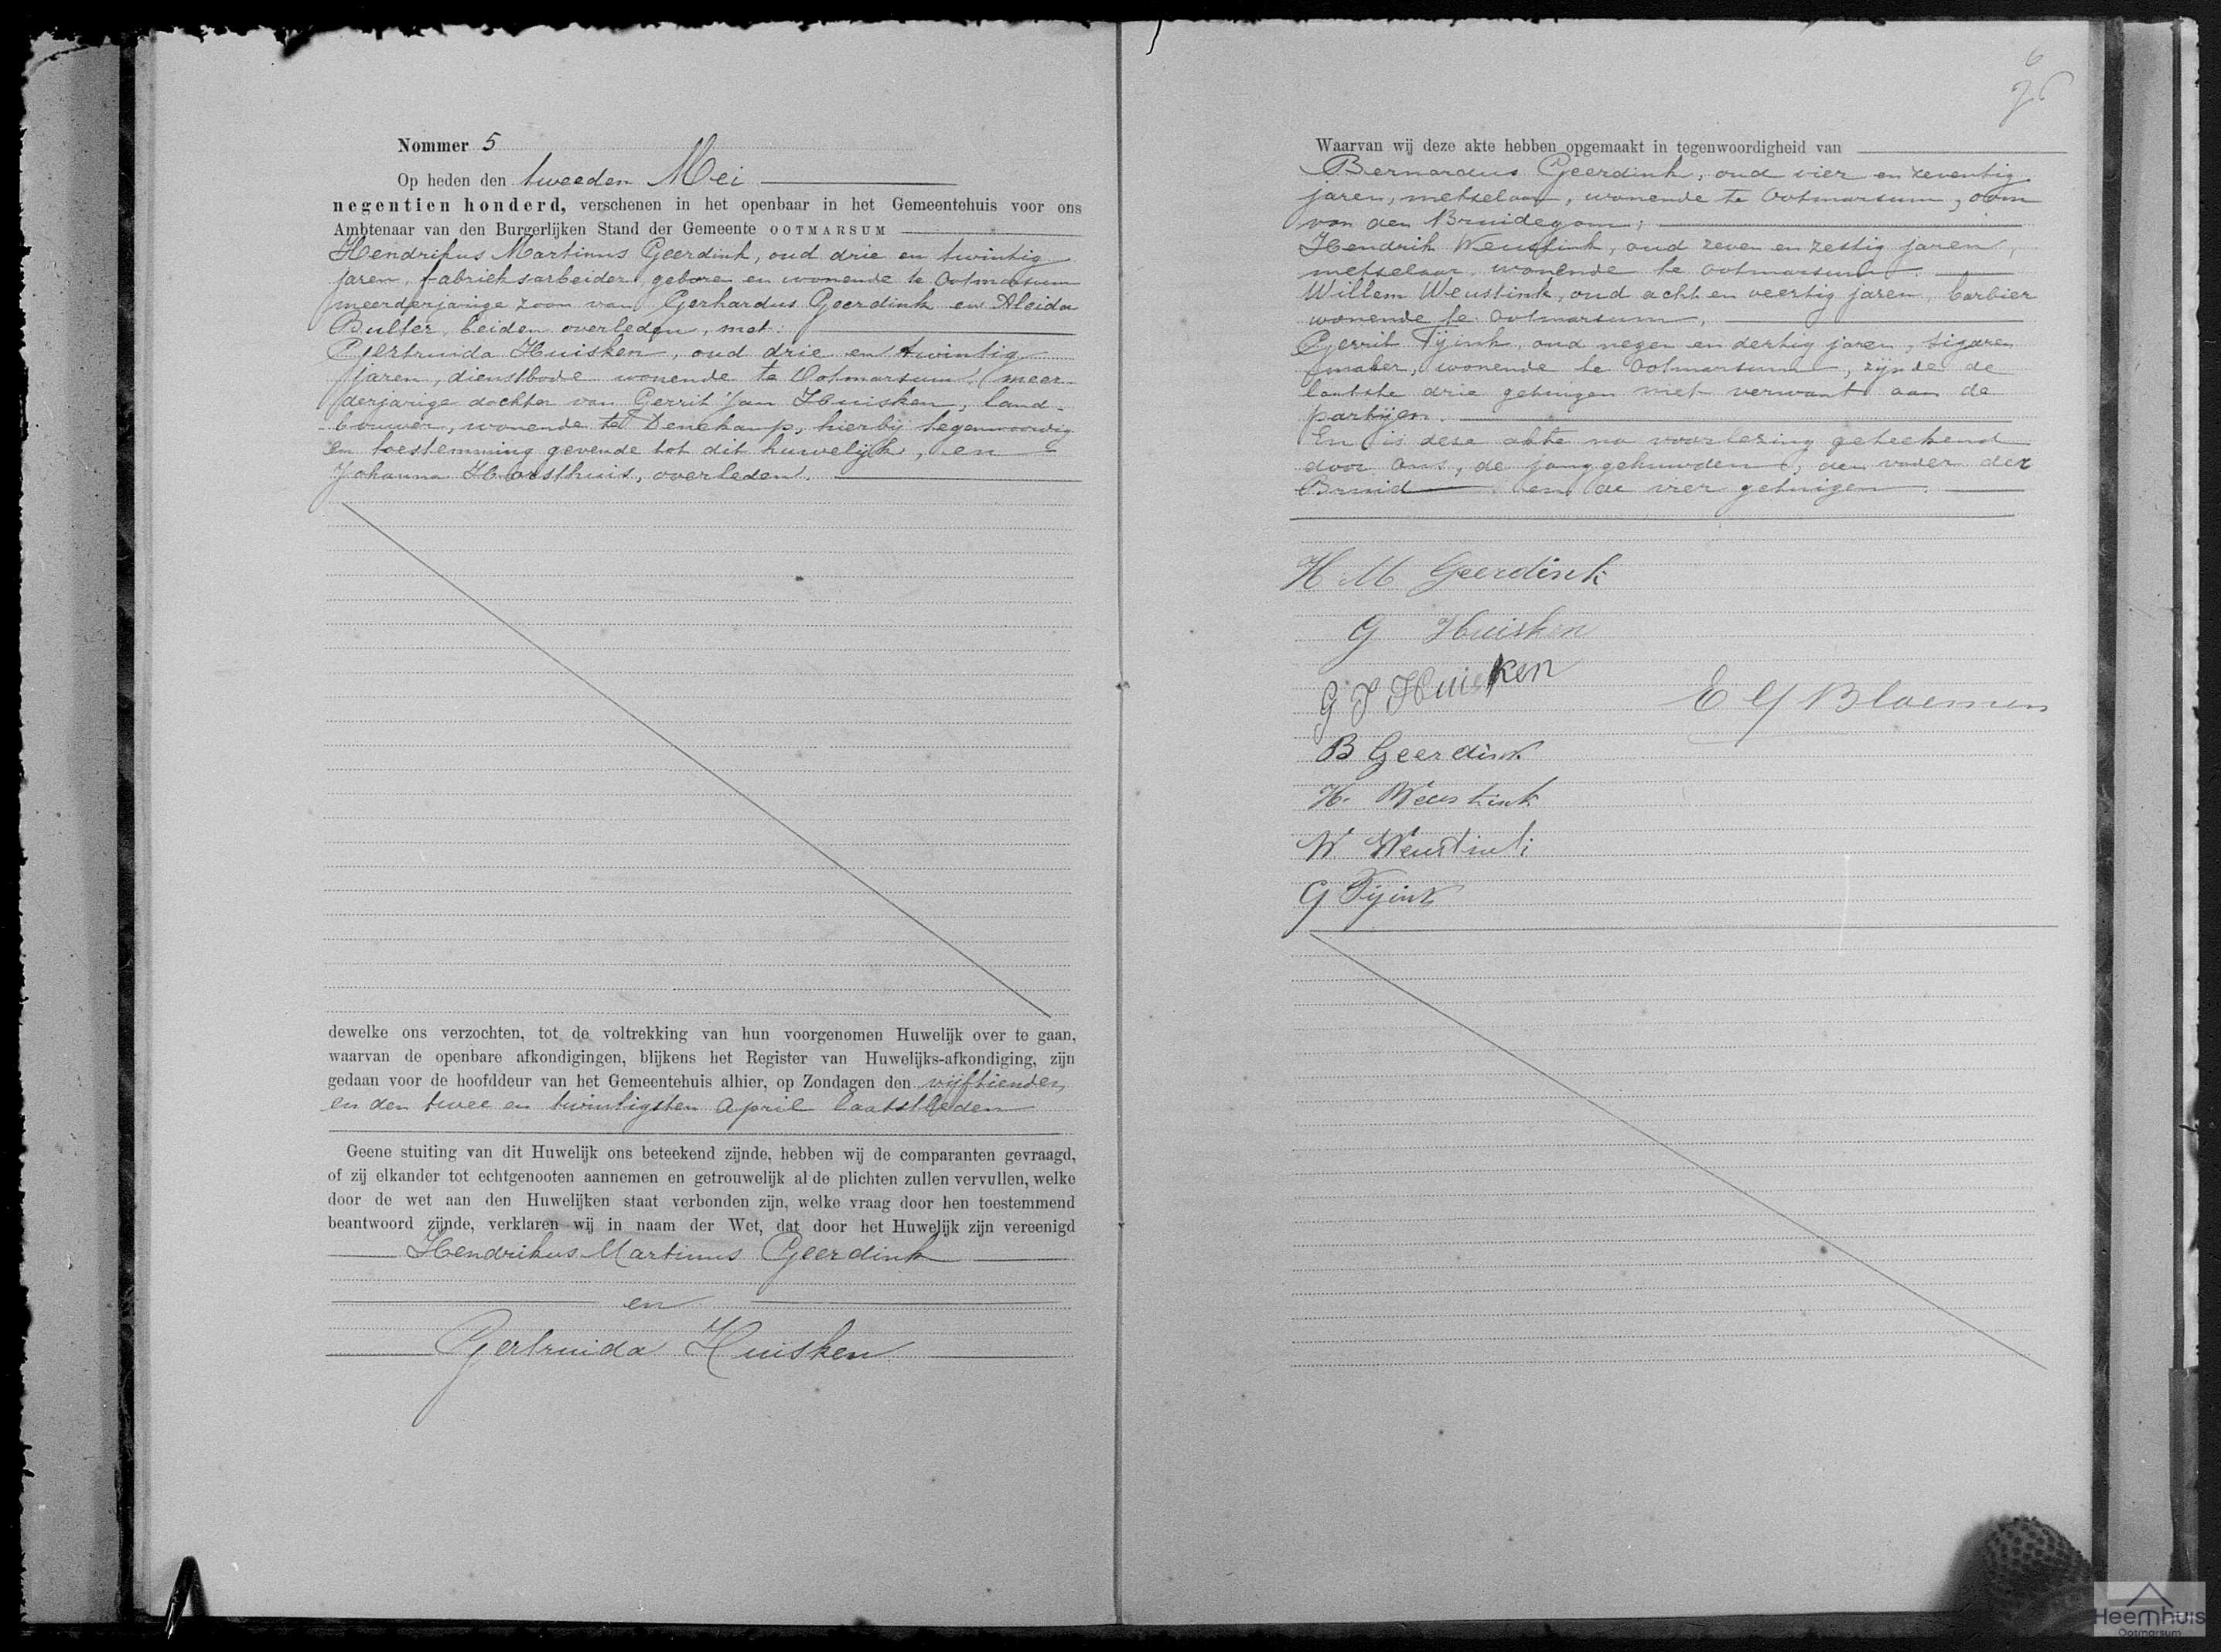 Nommer 5
Op heden den tweeden Mei
negentien honderd, verschenen in het openbaar in het Gemeentehuis voor ons
Ambtenaar van den Burgerlijken Stand der Gemeente OOTMARSUM
Hendrikus Martinus Geerdink, oud drie en twintig
jaren, fabrieksarbeider, geboren en wonende te Ootmarsum
meerderjarige zoon van Gerhardus Geerdink en Aleida
Bulter, beiden overleden, met:
Gertruida Huisken, oud drie en twintig
jaren, dienstbode wonende te Ootmarsum, meer-
derjarige dochter van Gerrit Jan Huisken, land-
bouwer, wonende te Denekamp, hierbij tegenwoordig
en toestemming gevende tot dit huwelijk, en
Johanna Horsthuis, overleden.
dewelke ons verzochten, tot de voltrekking van hun voorgenomen Huwelijk over te gaan,
waarvan de openbare afkondigingen, blijkens het Register van Huwelijks-afkondiging, zijn
gedaan voor de hoofddeur van het Gemeentehuis alhier, op Zondagen den vijftienden
en den twee en twintigsten April laatstleden
Geene stuiting van dit Huwelijk ons beteekend zijnde, hebben wij de comparanten gevraagd,
of zij elkander tot echtgenooten aannemen en getrouwelijk al de plichten zullen vervullen, welke
door de wet aan den Huwelijken staat verbonden zijn, welke vraag door hen toestemmend
beantwoord zijnde, verklaren wij in naam der Wet, dat door het Huwelijk zijn vereenigd
Hendrikus Martinus Geerdink
en
Gertruida Huisken
6
Waarvan wij deze akte hebben opgemaakt in tegenwoordigheid van
Bernardus Geerdink, oud vier en zeventig
jaren, metselaar, wonende te Ootmarsum, oom
van den Bruidegom;
Hendrik Weustink, oud zeven en zestig jaren,
metselaar, wonende te Ootmarsum.
Willem Weustink, oud acht en veertig jaren, barbier
wonende te Ootmarsum,
Gerrit Tijink, oud negen en dertig jaren, sigaren
maker, wonende te Ootmarsum, zijnde de
laatste drie getuigen niet verwant aan de
partijen.
En is deze akte na voorlezing geteekend
door ons, de jonggehuwden, den vader der
Bruid en de vier getuigen.
H M Geerdink
G Huisken
G J Huisken
E G Bloemen
B Geerdink
H. Weustink
W Weustink
G Tijink
Heemhuis
Ootmarsum